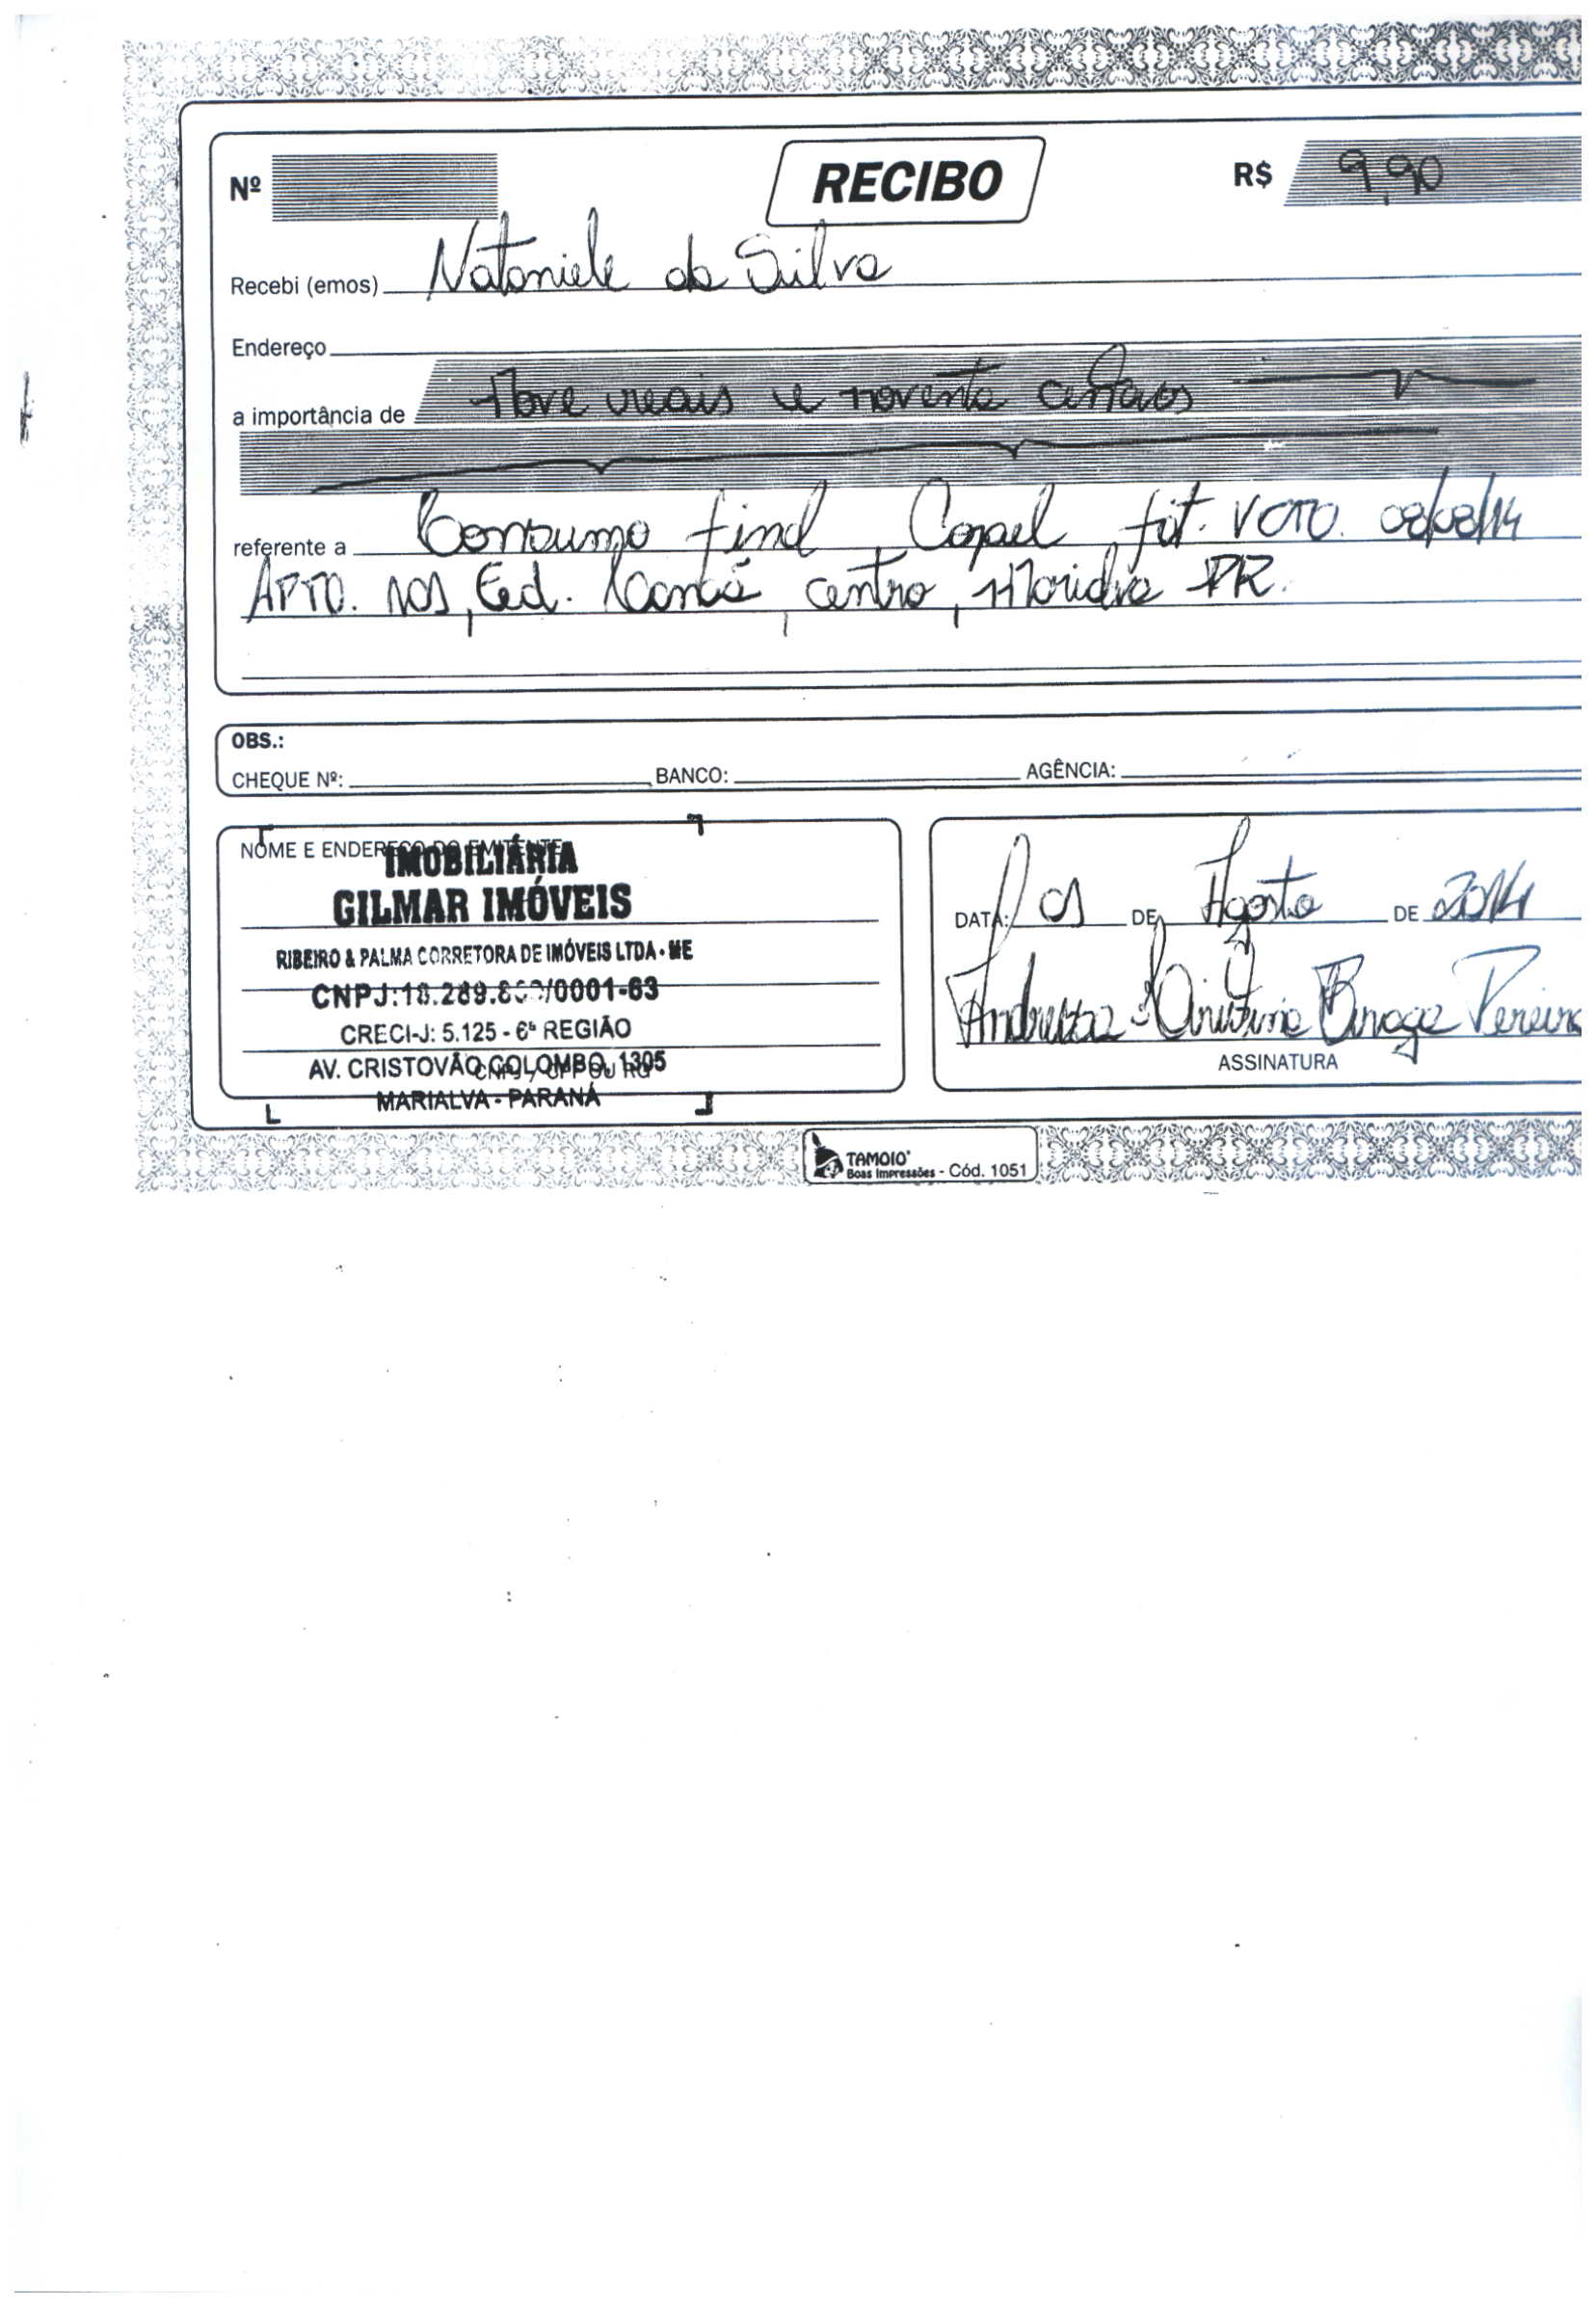 Nº RECIBO R$ 9,90
Recebi (emos) Nataniele da Silva
Endereço
a importância de Nove reais e noventa centavos
referente a Consumo final, Copel fat. VCTO. 08/08/14
APTO. 101, Ed. , centro, Marialva PR.
OBS.:
CHEQUE Nº: BANCO: AGÊNCIA:
NOME E ENDEREÇO DO EMITENTE
IMOBILIÁRIA
GILMAR IMÓVEIS
RIBEIRO & PALMA CORRETORA DE IMÓVEIS LTDA - ME
CNPJ: /0001-63
CRECI-J: 5.125 - 6ª REGIÃO
AV. CRISTOVÃO COLOMBO, 1305
CNPJ / CPF OU RG
MARIALVA - PARANÁ
DATA: 01 DE Agosto DE 2014
Andressa Cristina Braga Pereira
ASSINATURA
TAMOIO
Boas Impressões - Cód. 1051